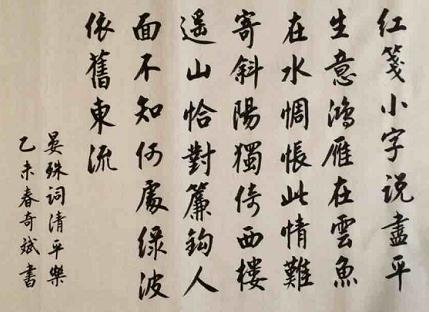 紅箋小字説盡平
生意鴻雁在雲魚
在水惆悵此情難
寄斜陽獨倚西樓
遥山恰對簾鈎人
面不知何處緑波
依舊東流
晏殊詞清平樂
乙未春奇斌書